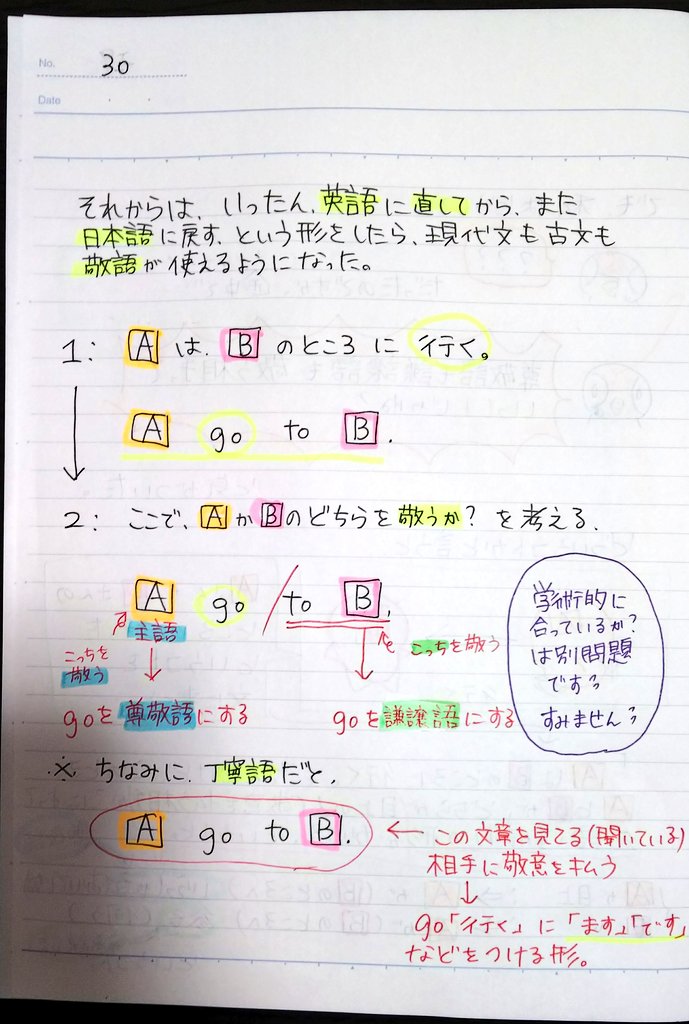 No. 30
Date
それからは、いったん、英語に直してから、また
日本語に戻す、という形をしたら、現代文も古文も
敬語が使えるようになった。
1: Aは、Bのところに行く。
A go to B.
2: ここで、AかBのどちらを敬うか?を考える、
A go / to B,
主語
こっちを
敬う
goを尊敬語にする
こっちを敬う
goを謙譲語にする
学術的に
合っているか?
は別問題
です
すみません
※ ちなみに、丁寧語だと、
A go to B.
← この文章を見てる(聞いている)
相手に敬意を払う
go「行く」に「ます」「です」
などをつける形。